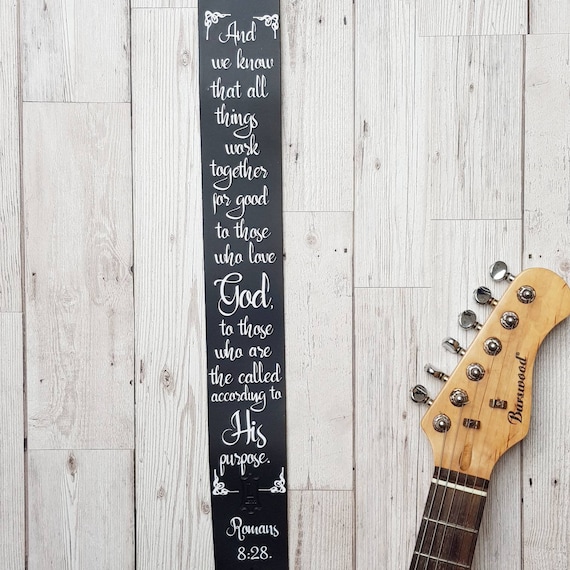 And
we know
that all
things
work
together
for good
to those
who love
God,
to those
who are
the called
according to
His
purpose.
Romans
8:28.
Barswood